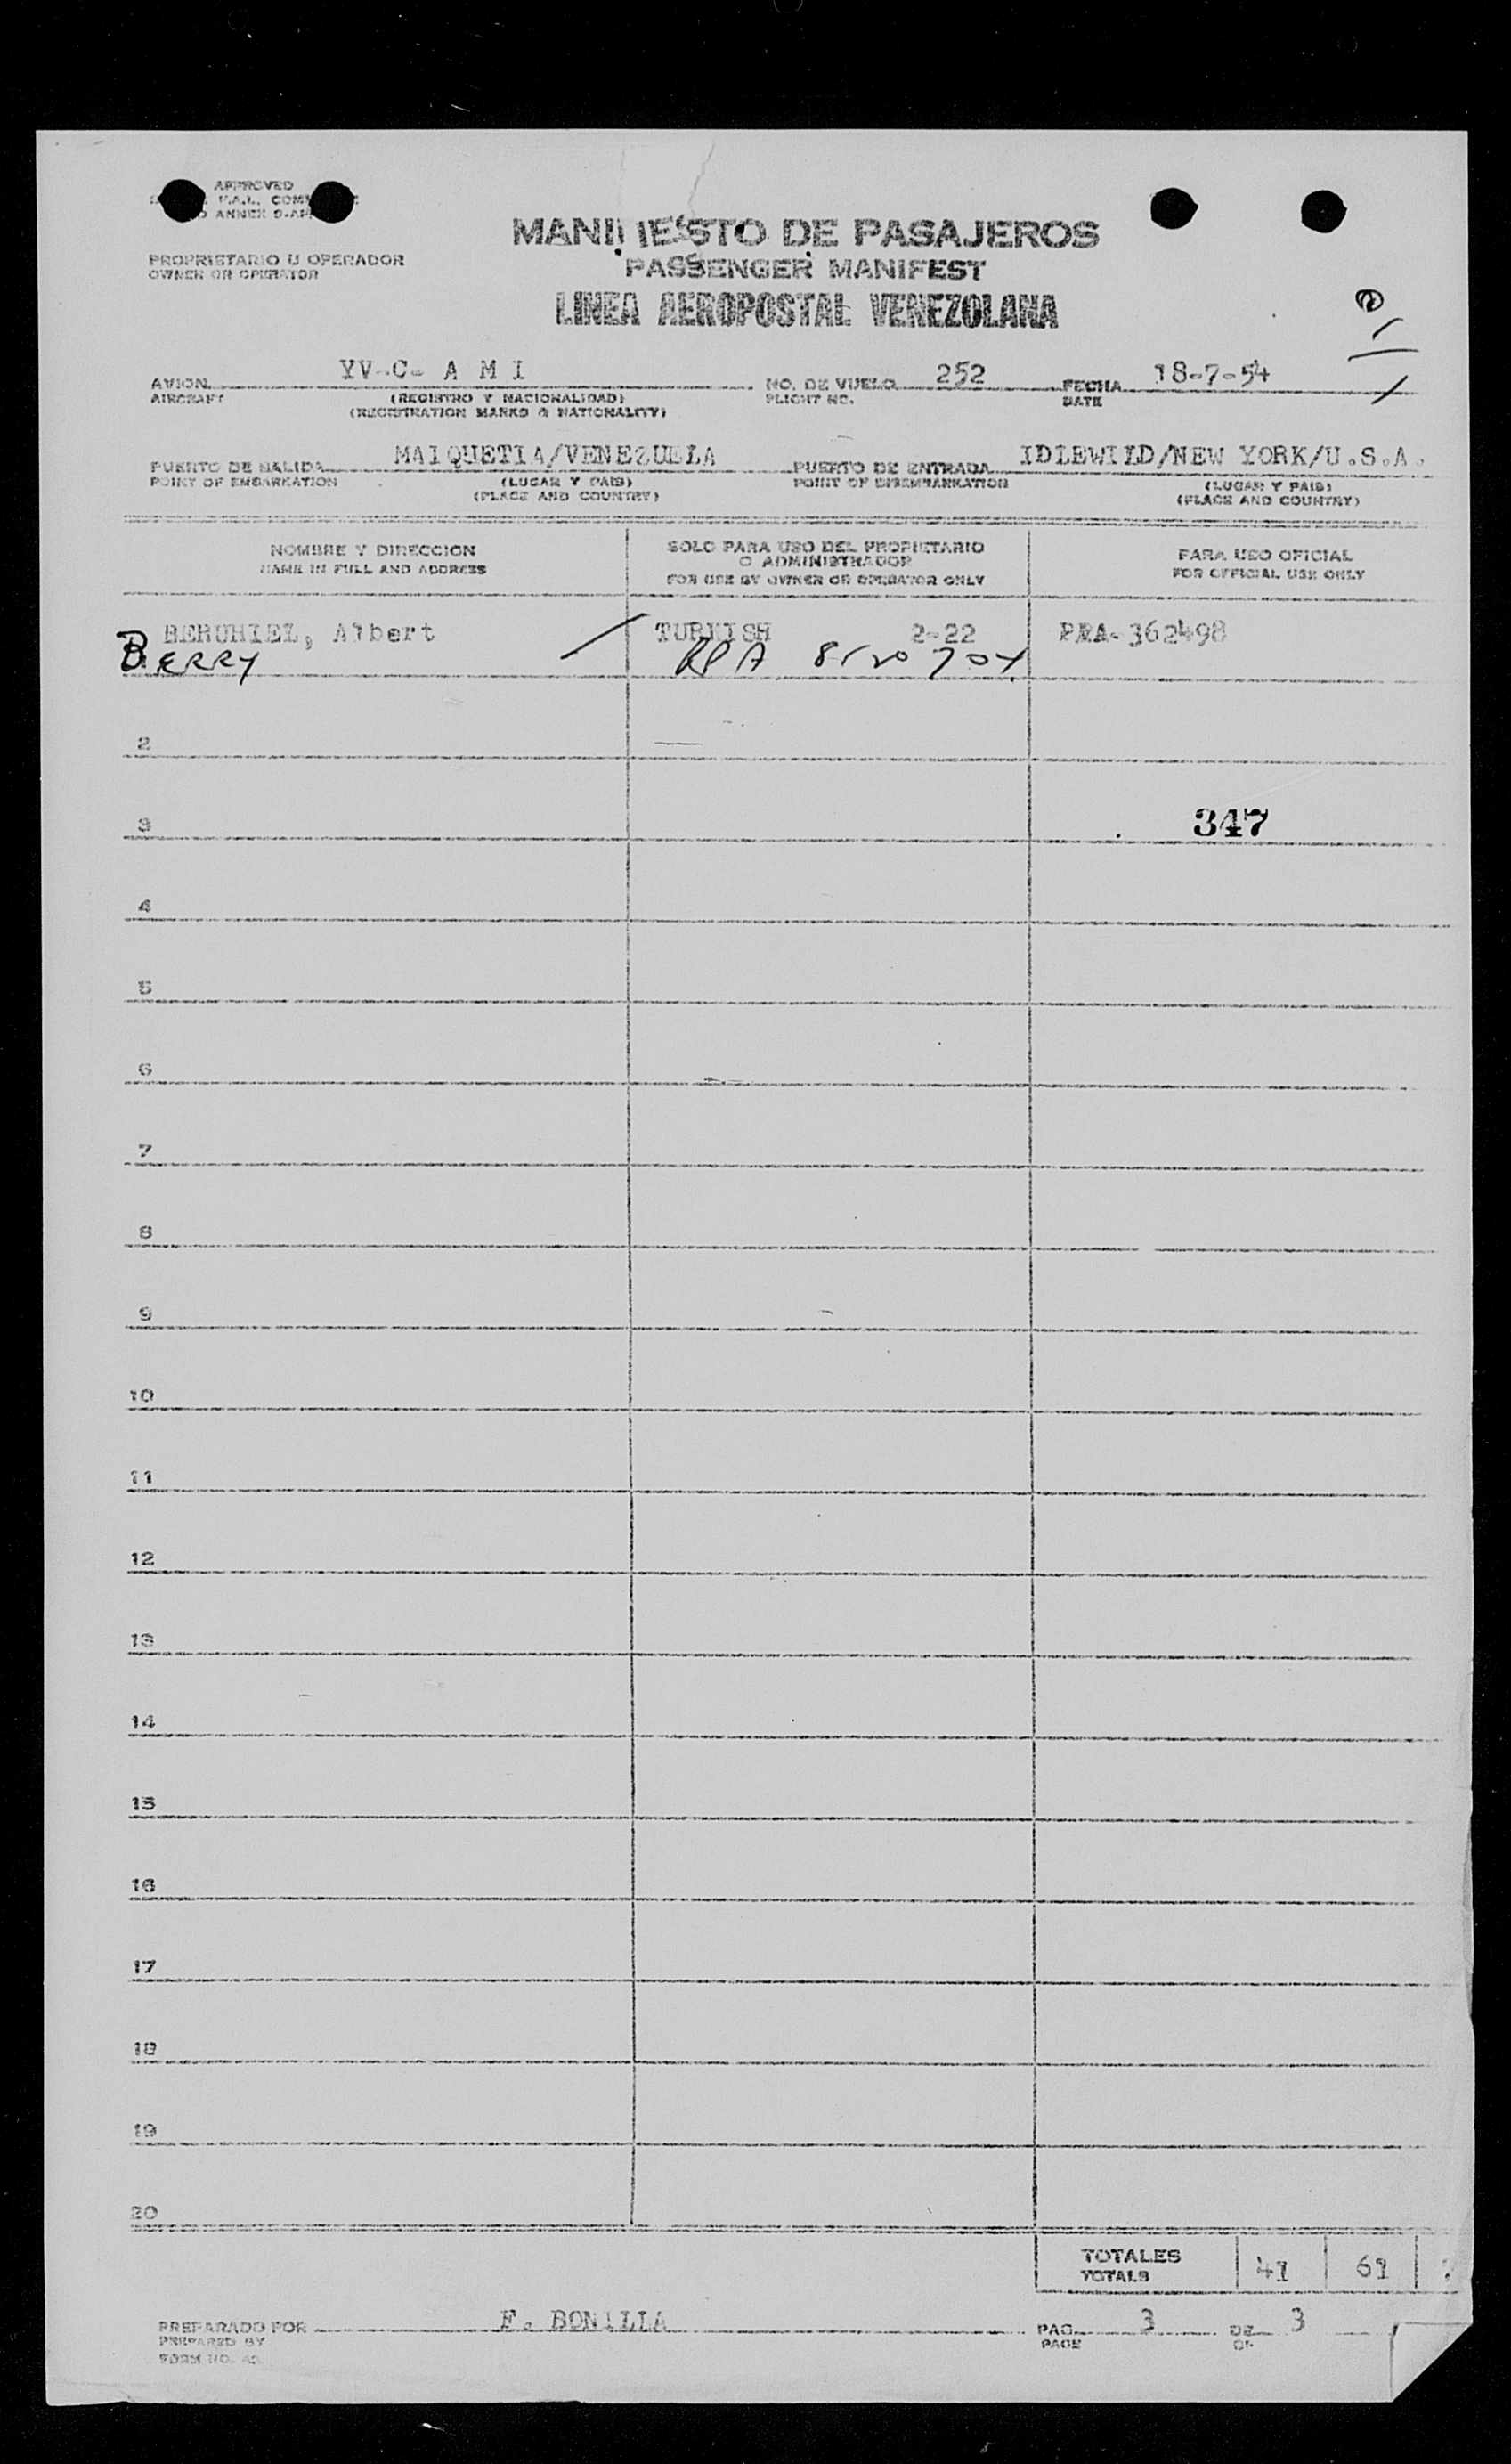 APPROVED
ANNEX 9-AP
MANIFIESTO DE PASAJEROS
PROPRIETARIO U OPERADOR
OWNER OR OPERATOR
PASSENGER MANIFEST
LINEA AEROPOSTAL VENEZOLANA
AVION YV-C- A M I NO. DE VUELO 252 FECHA 18-7-54
AIRCRAFT (REGISTRO Y NACIONALIDAD) FLIGHT NO. DATE
(REGISTRATION MARKS & NATIONALITY)
PUERTO DE SALIDA MAIQUETIA/VENEZUELA PUERTO DE ENTRADA IDLEWILD/NEW YORK/U.S.A.
POINT OF EMBARKATION (LUGAR Y PAIS) POINT OF DISEMBARKATION (LUGAR Y PAIS)
(PLACE AND COUNTRY) (PLACE AND COUNTRY)
NOMBRE Y DIRECCION SOLO PARA USO DEL PROPIETARIO O ADMINISTRADOR PARA USO OFICIAL
NAME IN FULL AND ADDRESS FOR USE BY OWNER OR OPERATOR ONLY FOR OFFICIAL USE ONLY
BERUHIEL, Albert TURKISH 2-22 PRA-362498
BERRY
2
3 347
4
5
6
7
8
9
10
11
12
13
14
15
16
17
18
19
20
TOTALES 41 61
TOTALS
PREPARADO POR F. BONILLA PAG. 3 DE 3
PREPARED BY PAGE OF
FORM NO.